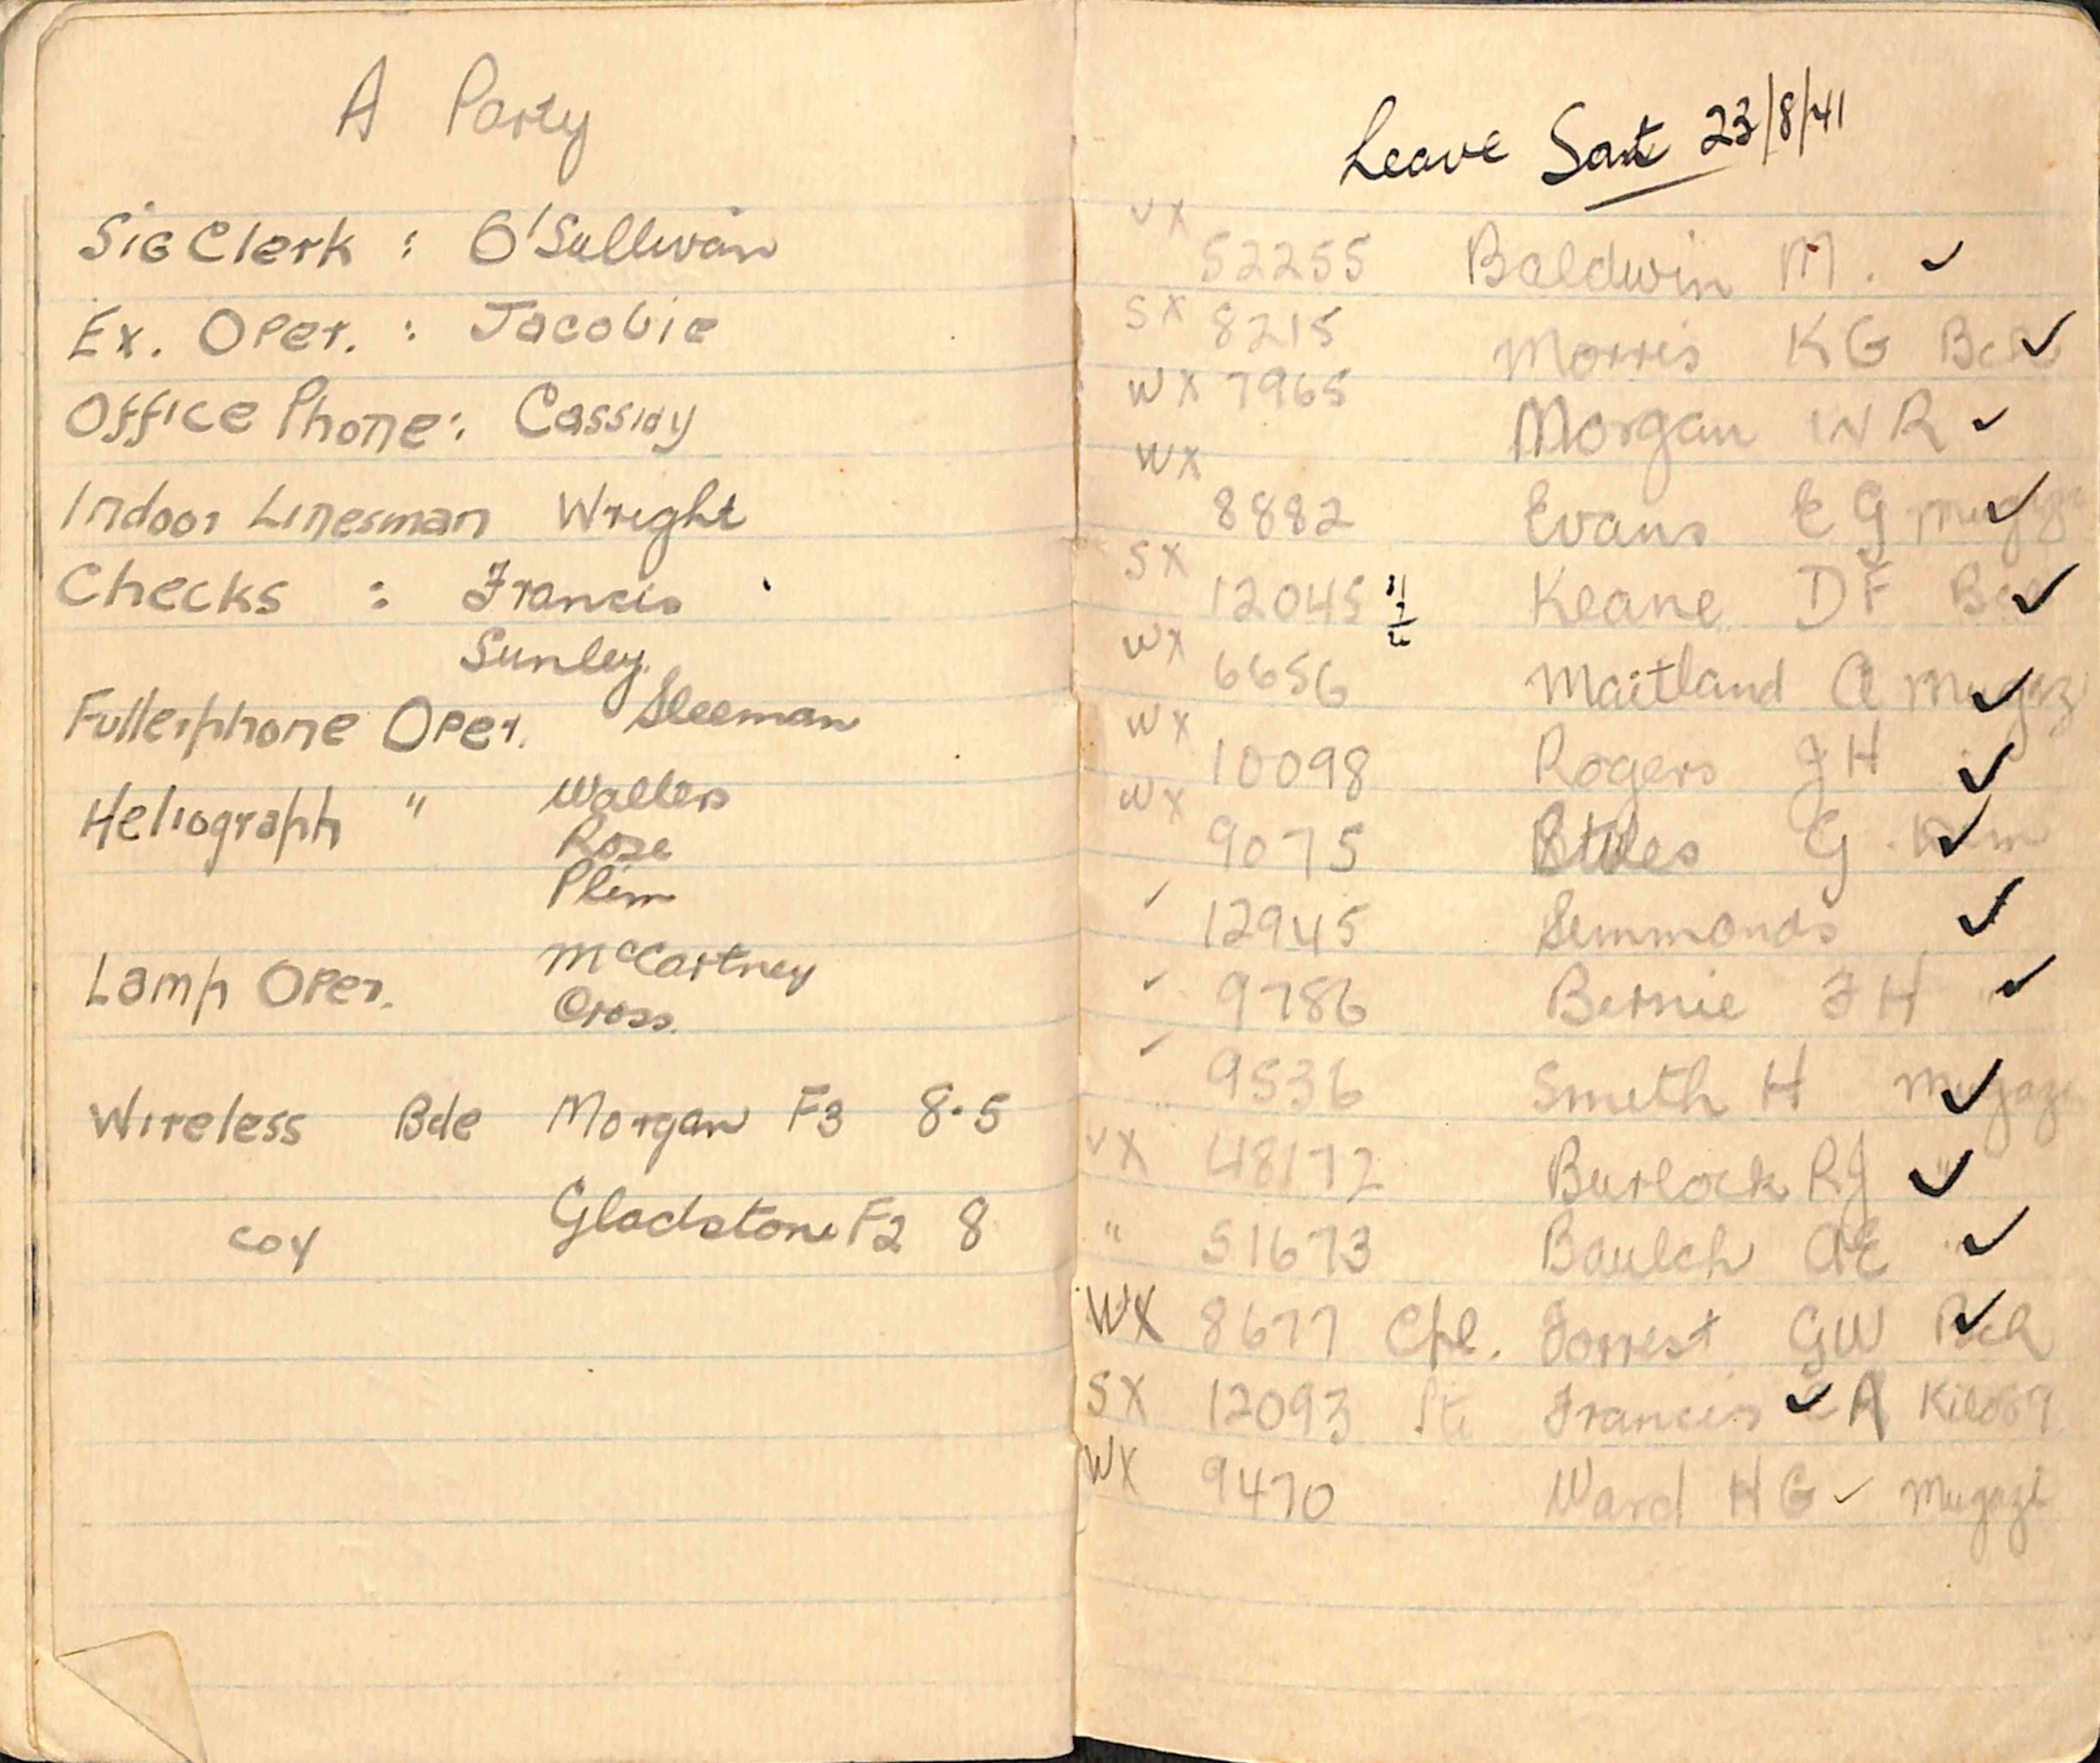 A Party
SIG Clerk : O'Sullivan
Ex. Oper. : Jacobie
Office Phone : Cassidy
Indoor Linesman Wright
Checks : Francis
Sunley.
Fullerphone Oper. Sleeman
Heliograph " Walters
Rose
Plim
Lamp Oper. McCartney
Cross.
Wireless Bde Morgan F3 8.5
Coy Gladstone F2 8
Leave Sat 23/8/41
VX 52255 Baldwin M. ✓
SX 8215 Morris KG ✓
WX 7965 Morgan W R ✓
WX 8882 Evans E G ✓
SX 12045 Keane DF ✓
WX 6656 Maitland A ✓
WX 10098 Rogers J H ✓
WX 9075 Stiles G ✓
✓ 12945 Simmonds ✓
✓ 9786 Bernie F H ✓
✓ 9536 Smith H ✓
VX 48172 Burlock RJ ✓
" 51673 Baulch AE ✓
WX 8677 Cpl. Forrest GW ✓
SX 12093 Francis ✓ A
WX 9470 Ward H G ✓ Mugazi